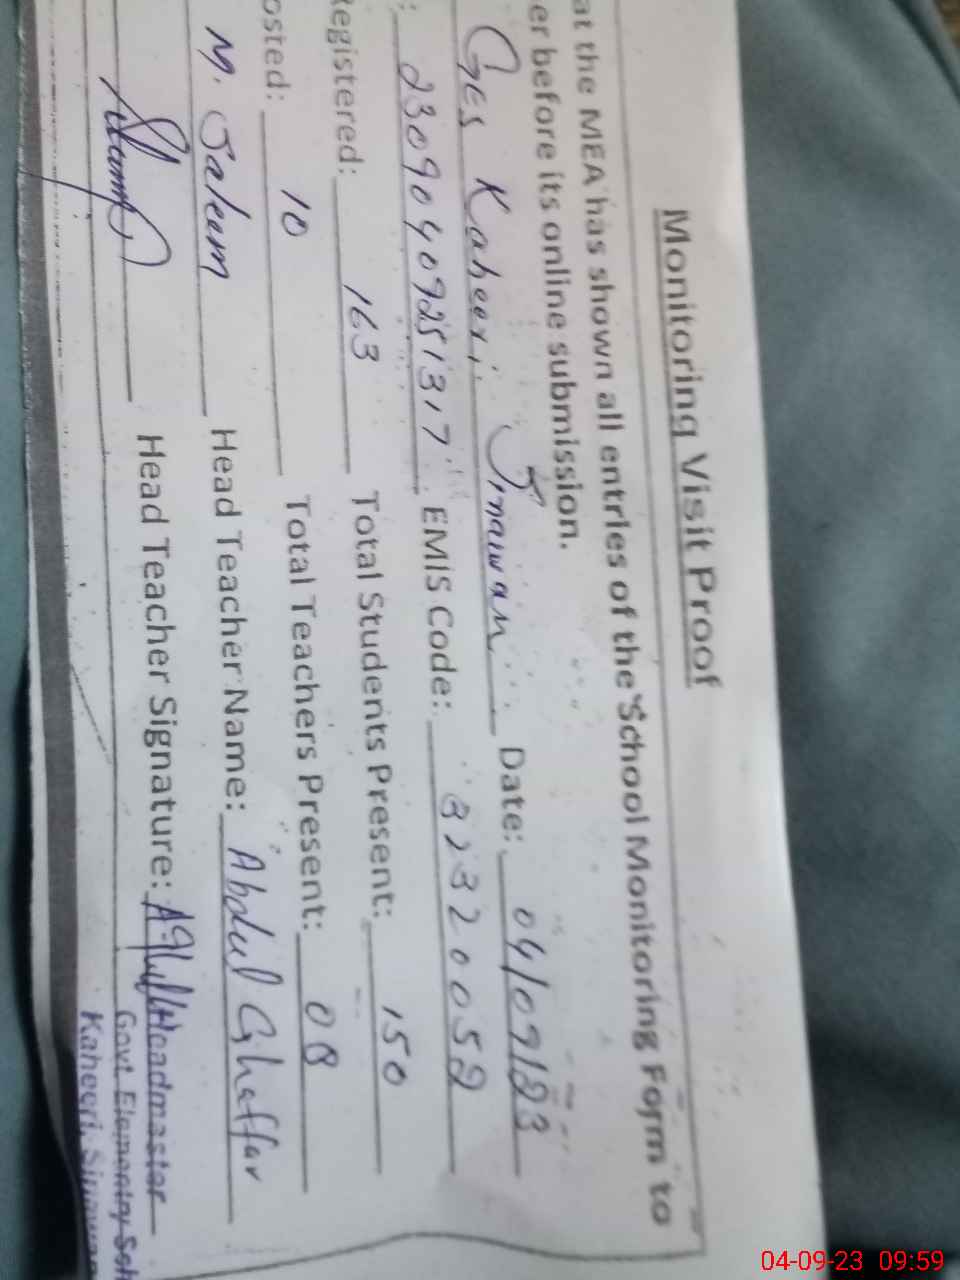 Monitoring Visit Proof
at the MEA has shown all entries of the School Monitoring Form to
er before its online submission.
Ges Kaheeri, Sinawan Date: 04/09/23
: 23090409251317 EMIS Code: 32320052
Registered: 163 Total Students Present: 150
osted: 10 Total Teachers Present: 08
M. Saleem Head Teacher Name: Abdul Ghaffar
Head Teacher Signature:
Headmaster
Govt. Elementry Sch
Kaheeri, Sinawan
04-09-23 09:59